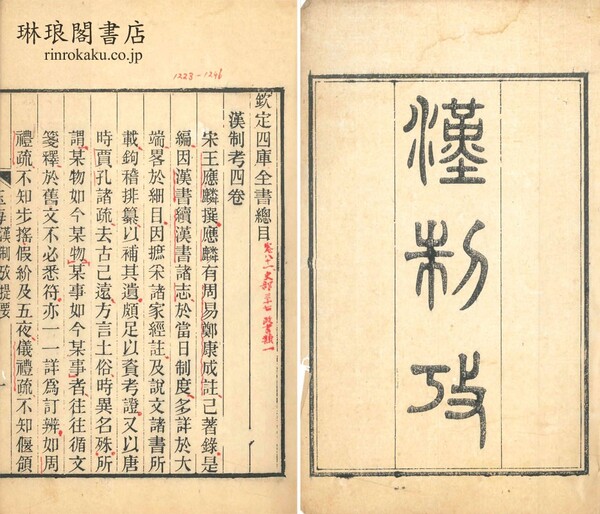 琳琅閣書店
rinrokaku.co.jp
漢制攷
1223-1246
欽定四庫全書總目
漢制考四卷
宋王應麟撰應麟有周易鄭康成註已著錄是
編因漢書續漢書諸志於當日制度多詳於大
端畧於細目因摭采諸家經註及說文諸書所
載鉤稽排纂以補其遺頗足以資考證又以唐
時賈孔諸疏去古已遠方言土俗時異名殊所
謂某物如今某物某事如今某事者往往循文
箋釋於舊文不必悉符亦一一詳為訂辨如周
禮疏不知步搖假紒及五夜儀禮疏不知偃領
玉海漢制攷提要
一